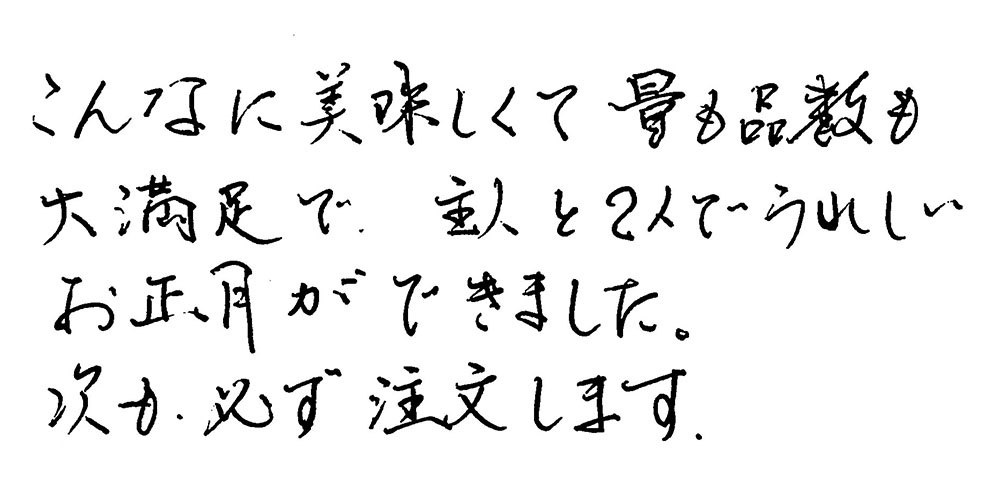 こんなに美味しくて量も品数も
大満足で、主人と2人でうれしい
お正月ができました。
次も、必ず注文します。